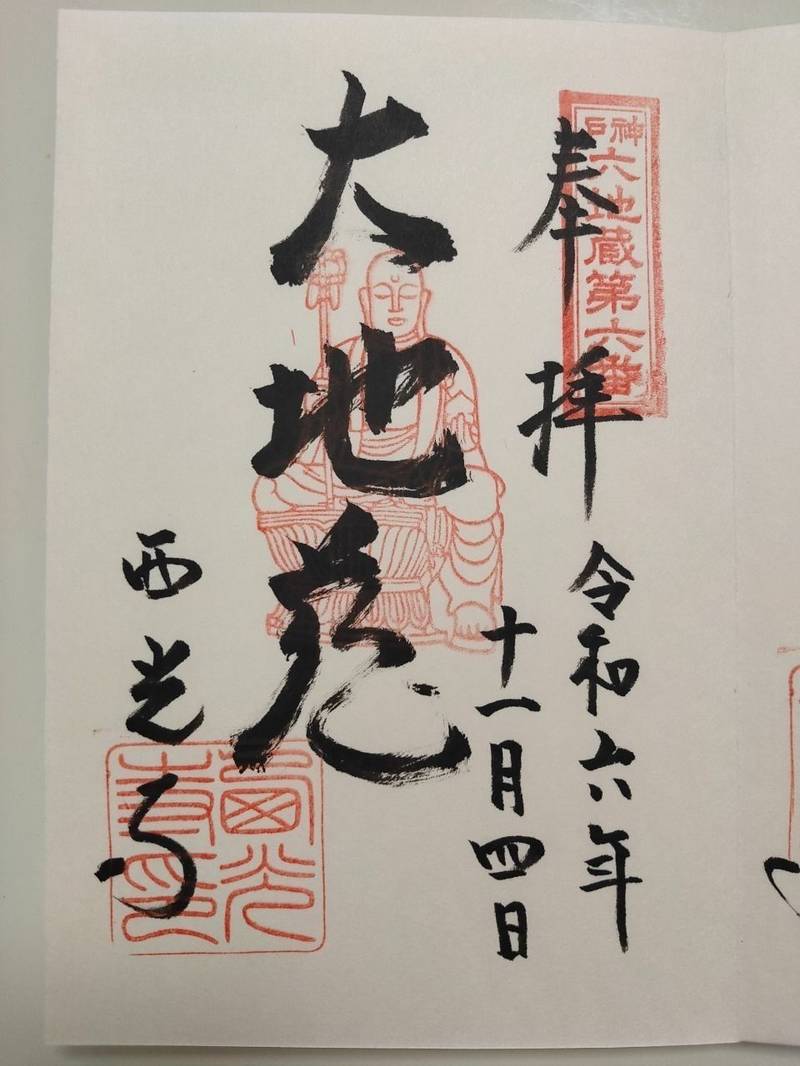 神戸六地蔵第六番
奉拝
令和六年
十一月四日
大地蔵
西光寺
西光
寺印